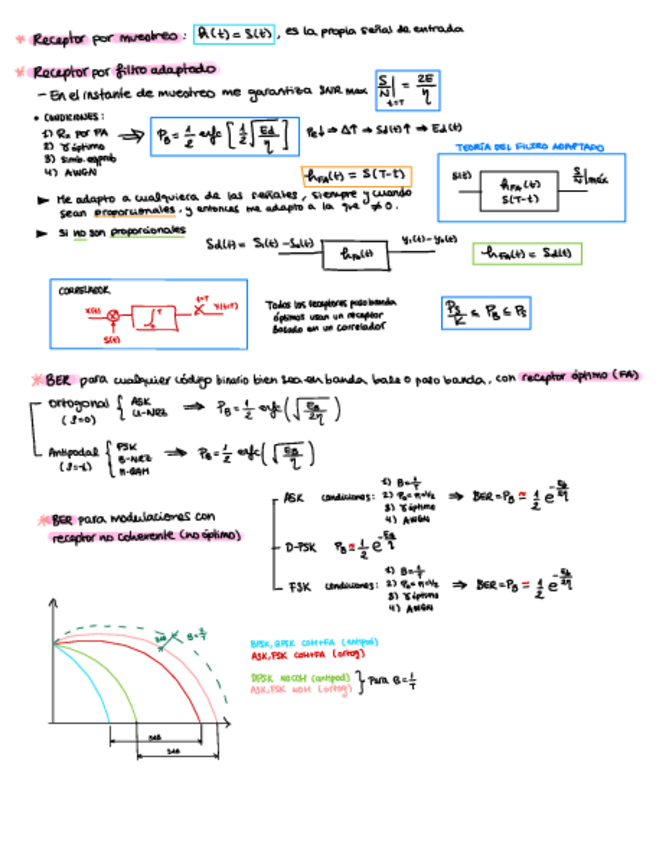 * Receptor por muestreo: h(t) = S(t), es la propia señal de entrada
* Receptor por filtro adaptado
- En el instante de muestreo me garantiza SNR max S/N|t=T = 2E/η
• CONDICIONES:
1) Rx por FA
2) γ óptimo
3) simb. equiprob
4) AWGN
⇒ PB = 1/2 erfc [ 1/2 √(Ed/η) ] Pe↓ → Δ↑ → Sd(t)↑ → Ed(t)
TEORÍA DEL FILTRO ADAPTADO
S(t) hFA(t) S(T-t) S/N|máx
hFA(t) = S(T-t)
► Me adapto a cualquiera de las señales, siempre y cuando
sean proporcionales, y entonces me adapto a la que ≠ 0.
► Si no son proporcionales
Sd(t) = S1(t) - S0(t) hFA(t) y1(t) - y0(t)
hFA(t) = Sd(t)
CORRELADOR
X(t) ⊗ ∫0T t=T Y(t=T)
S(t)
Todos los receptores paso banda
óptimos usan un receptor
basado en un correlador
PS/K ≤ PB ≤ PS
* BER para cualquier código binario bien sea en banda base o paso banda, con receptor óptimo (FA)
Ortogonal (ρ=0) { ASK U-NRZ ⇒ PB = 1/2 erfc ( √(EB/2η) )
Antipodal (ρ=-1) { PSK B-NRZ M-QAM ⇒ PB = 1/2 erfc ( √(EB/η) )
* BER para modulaciones con
receptor no coherente (no óptimo)
ASK condiciones: 1) B=1/T
2) P0=P1=1/2
3) γ óptimo
4) AWGN
⇒ BER = PB ≈ 1/2 e^(-Eb/2η)
D-PSK PB ≈ 1/2 e^(-EB/η)
FSK condiciones: 1) B=1/T
2) P0=P1=1/2
3) γ óptimo
4) AWGN
⇒ BER = PB = 1/2 e^(-Eb/2η)
3dB B=2/T
BPSK, QPSK COH+FA (antipod)
ASK, FSK COH+FA (ortog)
DPSK NO COH (antipod)
ASK, FSK NOH (ortog)
} para B=1/T
3dB
3dB